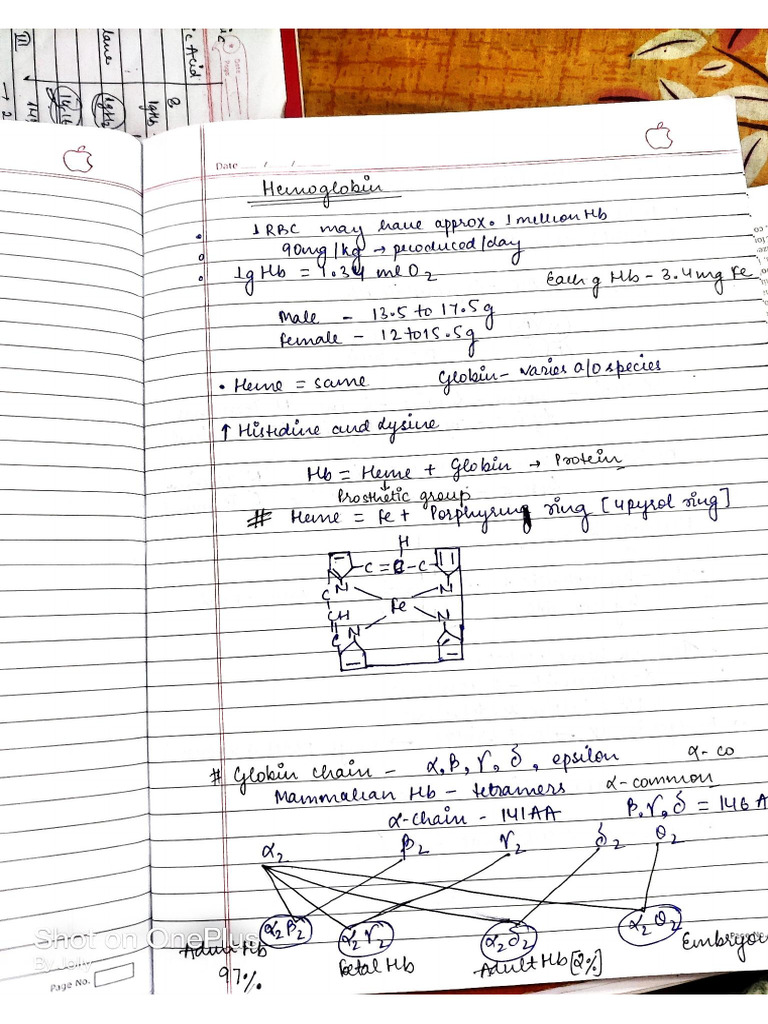 Date ..... / ..... / .....
Hemoglobin
• 1 RBC may have approx. 1 million Hb
• 90mg/kg → produced/day
• 1g Hb = 1.34 ml O2 Each g Hb - 3.4mg Fe
Male - 13.5 to 17.5g
Female - 12 to 15.5g
• Heme = same Globin - varies a/o species
↑ Histidine and Lysine
Hb = Heme + Globin → Protein
↓
Prosthetic group
# Heme = Fe + Porphyring ring [4 pyrol ring]
H
C = C - C
N N
C Fe
CH N N
C
# Globin chain - α, β, γ, δ, epsilon α- co
Mammalian Hb - tetramers α-common
α-chain - 141AA β, γ, δ = 146 A
α2 β2 γ2 δ2 θ2
α2β2 α2γ2 α2δ2 α2θ2
Adult Hb Fetal Hb Adult Hb [2%] Embryo
97%
Shot on OnePlus
By Jolly
Page No.